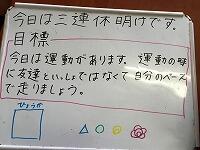 今日は三連休明けです。
目標
今日は運動があります。運動の時
に友達といっしょではなくて自分のペース
で走りましょう。
ひょうか